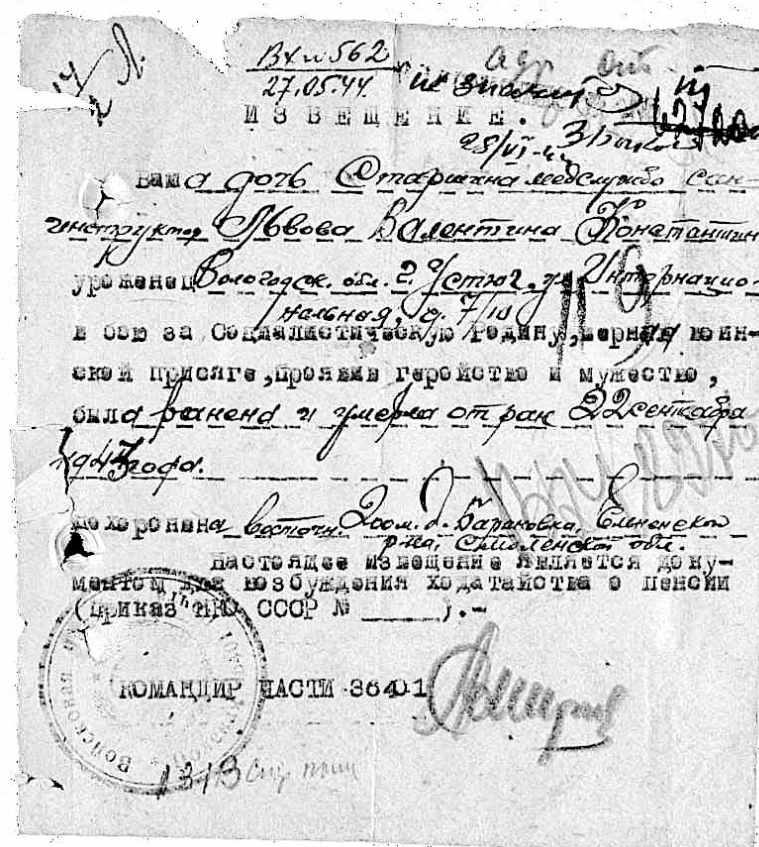 Вх. № 562
27.05.44.
ИЗВЕЩЕНИЕ.
28/VI-44
Ваша дочь Старшина медслужбы сан-
инструктор Львова Валентина Константин
уроженец Вологодск. обл. г. Устюг. ул. Интернацио-
нальная, д. 7/10
в бою за Социалистическую Родину, верная воин-
ской присяге, проявив геройство и мужество,
была ранена и умерла от ран 22 сентября
1943 года.
похоронена восточн. 200 м. д. Барановка, Ельненской
р-на, Смоленской обл.
Настоящее извещение является доку-
ментом для возбуждения ходатайства о пенсии
(приказ НКО СССР №        ).-
КОМАНДИР ЧАСТИ 36401
Войсковая
1313